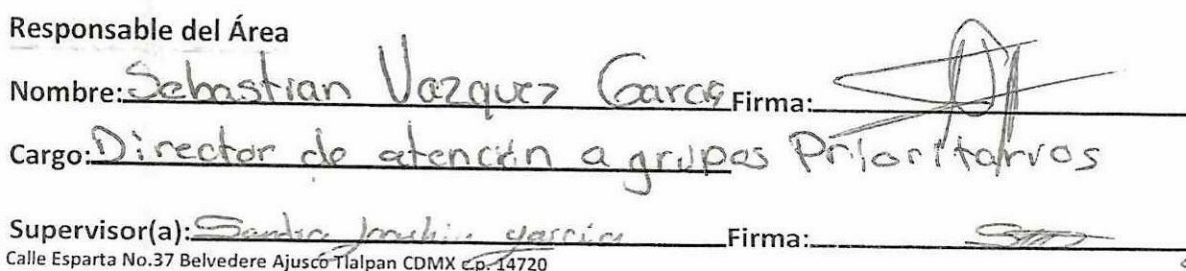 Responsable del Área
Nombre: Sebastian Vazquez Garcia Firma:
Cargo: Director de atención a grupos Prioritarios
Supervisor(a): Sandra García Firma:
Calle Esparta No.37 Belvedere Ajusco Tlalpan CDMX c.p. 14720